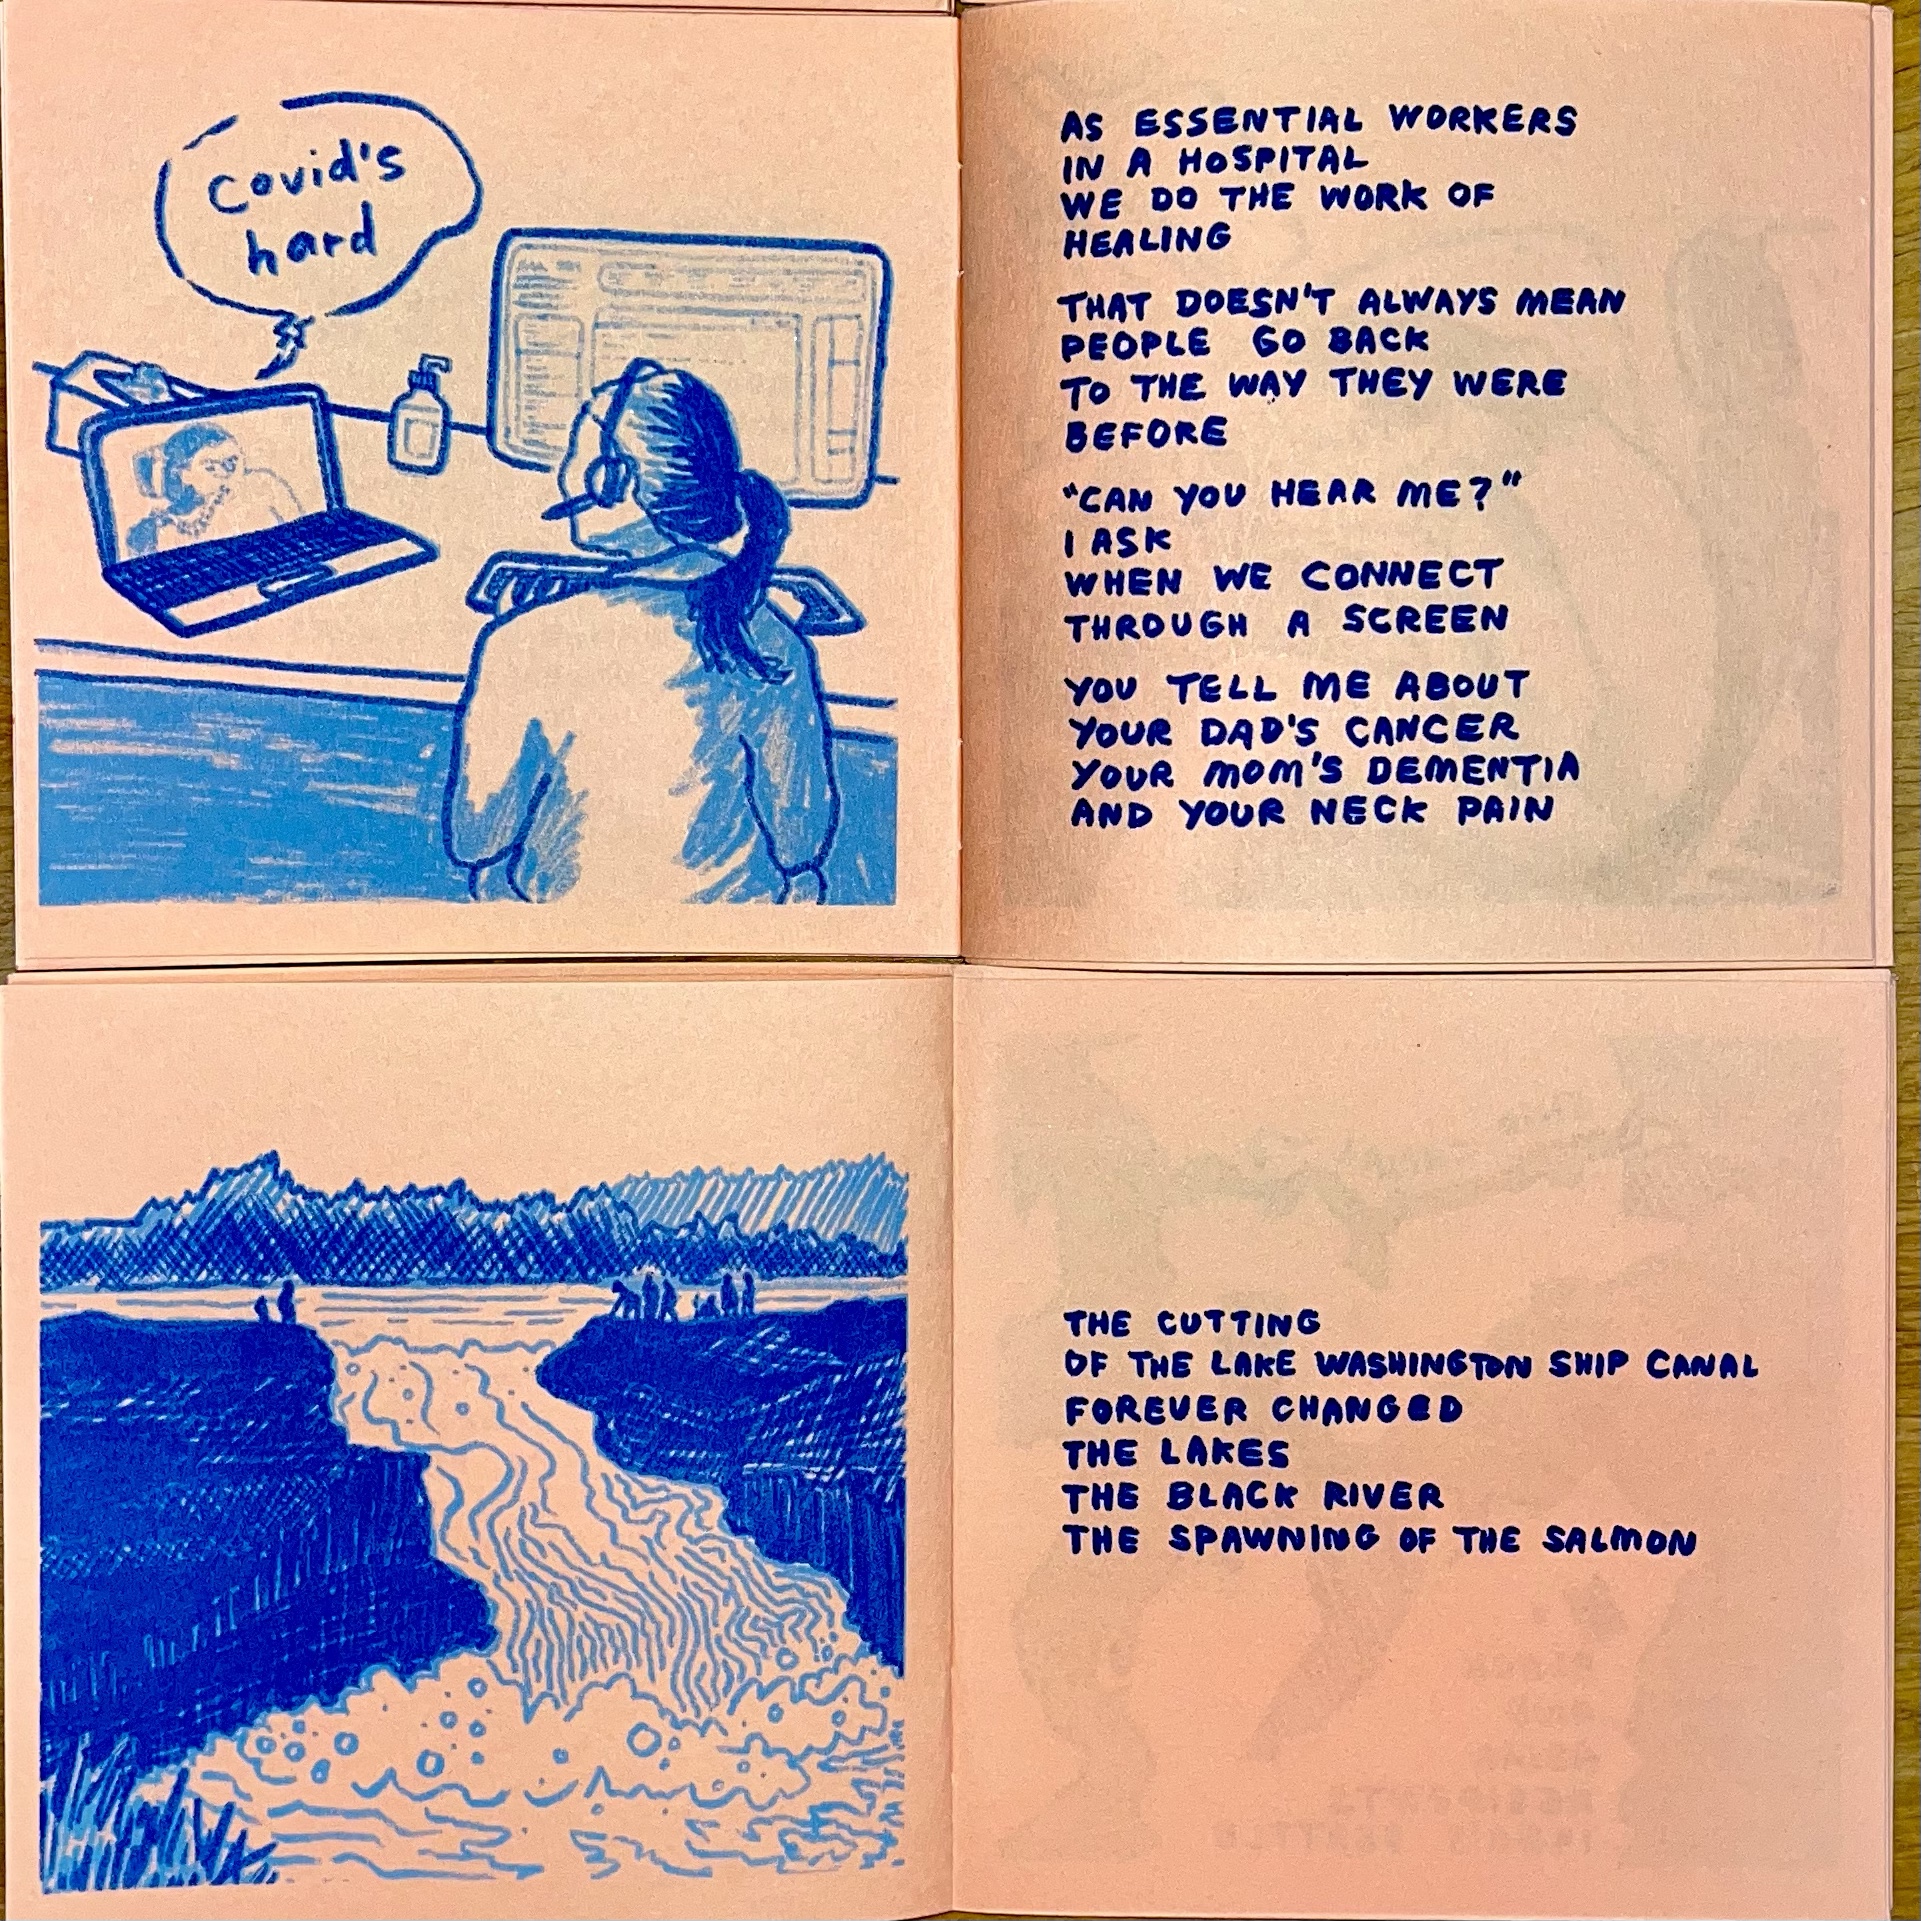 Covid's
hard
AS ESSENTIAL WORKERS
IN A HOSPITAL
WE DO THE WORK OF
HEALING
THAT DOESN'T ALWAYS MEAN
PEOPLE GO BACK
TO THE WAY THEY WERE
BEFORE
"CAN YOU HEAR ME?"
I ASK
WHEN WE CONNECT
THROUGH A SCREEN
YOU TELL ME ABOUT
YOUR DAD'S CANCER
YOUR MOM'S DEMENTIA
AND YOUR NECK PAIN
THE CUTTING
OF THE LAKE WASHINGTON SHIP CANAL
FOREVER CHANGED
THE LAKES
THE BLACK RIVER
THE SPAWNING OF THE SALMON